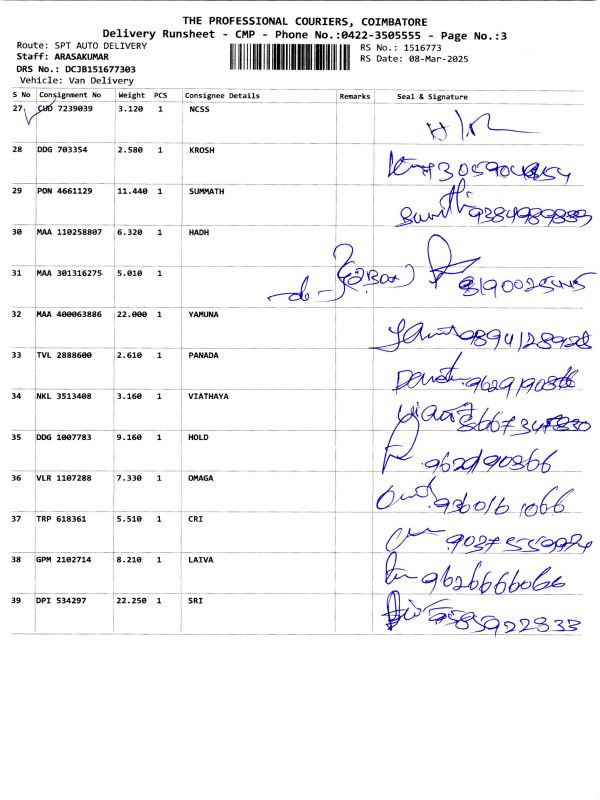 THE PROFESSIONAL COURIERS, COIMBATORE
Delivery Runsheet - CMP - Phone No.:0422-3505555 - Page No.:3
Route: SPT AUTO DELIVERY
Staff: ARASAKUMAR
DRS No.: DCJB151677303
Vehicle: Van Delivery
RS No.: 1516773
RS Date: 08-Mar-2025
S No Consignment No Weight PCS Consignee Details Remarks Seal & Signature
27 CUD 7239039 3.120 1 NCSS
28 DDG 703354 2.580 1 KROSH
29 PON 4661129 11.440 1 SUMMATH 9384989883
30 MAA 110258807 6.320 1 HADH
31 MAA 301316275 5.010 1 (2 Box)
32 MAA 400063886 22.000 1 YAMUNA
33 TVL 2888600 2.610 1 PANADA
34 NKL 3513408 3.160 1 VIATHAYA
35 DDG 1007783 9.160 1 HOLD
36 VLR 1107288 7.330 1 OMAGA 9360161066
37 TRP 618361 5.510 1 CRI
38 GPM 2102714 8.210 1 LAIVA 9626666066
39 DPI 534297 22.250 1 SRI